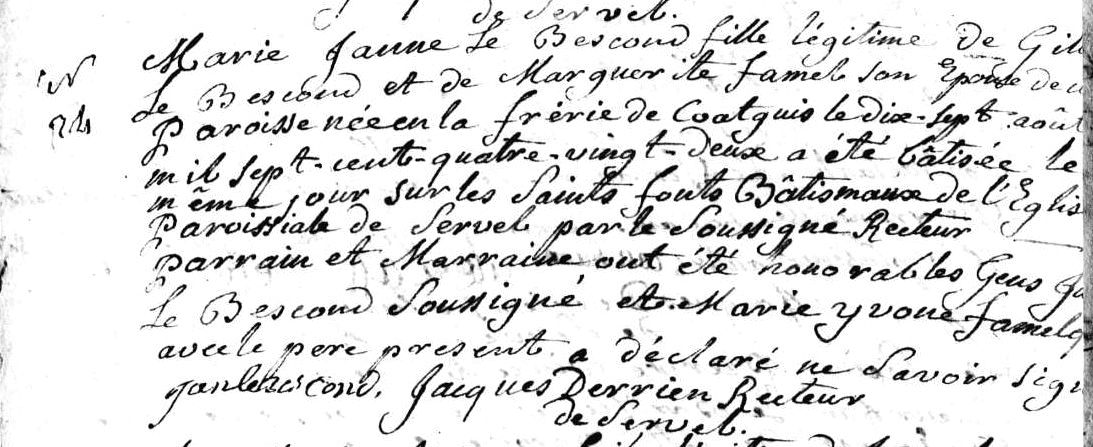 de Servel.
Marie Janne Le Bescond fille légitime de Gil
N Le Bescond et de Marguerite famel son Epouse de
24 Paroisse née en la frérie de Coatquis le dix-sept août
mil sept-cent-quatre-vingt-deux a été bâtisée le
même jour sur les Saints fonts Bâtismaux de l'Eglis
Paroissiale de Servel par le Soussigné Recteur
parrain et Marraine ont été honorables Gens
Le Bescond Soussigné et Marie yvone famel q
avec le pere present a déclaré ne Savoir sign
jan le Bescond. Jacques Derrien Recteur
de Servel.